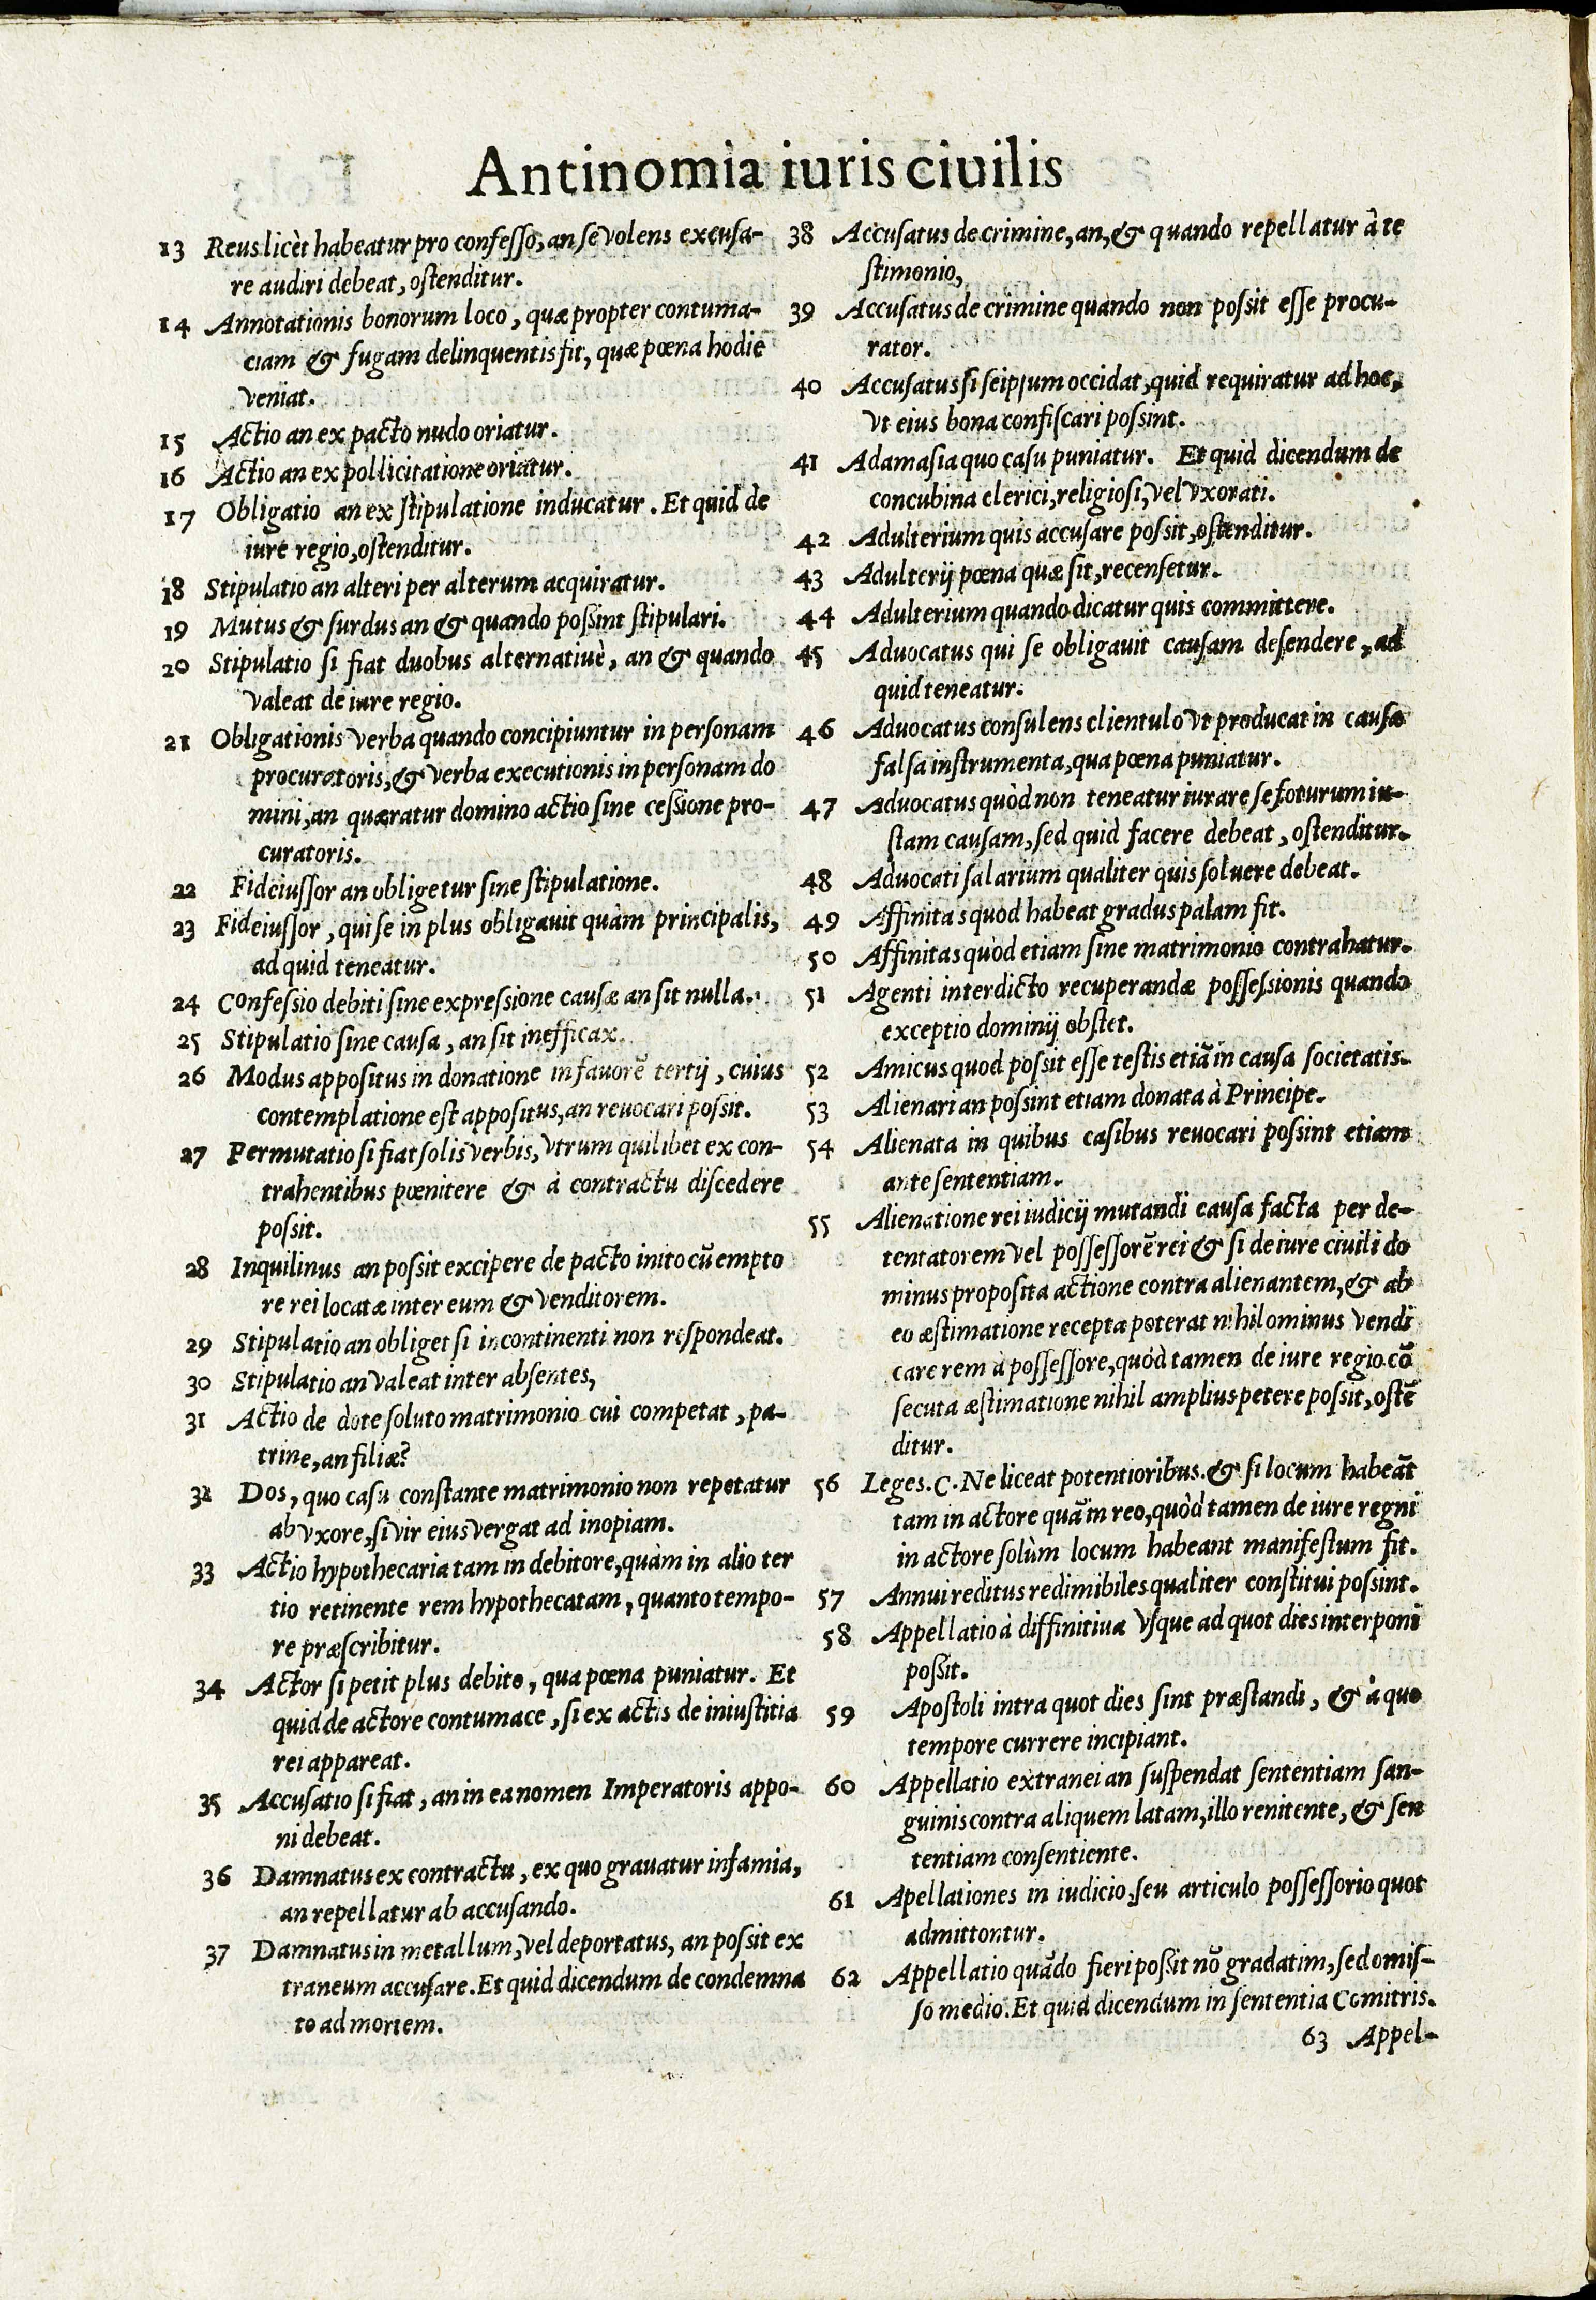 Antinomia iuris ciuilis
13 Reus licèt habeatur pro confesso, an se volens excusa-
re audiri debeat, ostenditur.
14 Annotationis bonorum loco, quæ propter contuma-
ciam & fugam delinquentis fit, quæ pœna hodie
veniat.
15 Actio an ex pacto nudo oriatur.
16 Actio an ex pollicitatione oriatur.
17 Obligatio an ex stipulatione inducatur. Et quid de
iure regio, ostenditur.
18 Stipulatio an alteri per alterum acquiratur.
19 Mutus & surdus an & quando possint stipulari.
20 Stipulatio si fiat duobus alternatiuè, an & quando
valeat de iure regio.
21 Obligationis verba quando concipiuntur in personam
procuratoris, & verba executionis in personam do
mini, an quæratur domino actio sine cessione pro-
curatoris.
22 Fideiussor an obligetur sine stipulatione.
23 Fideiussor, qui se in plus obligauit quàm principalis,
ad quid teneatur.
24 Confessio debiti sine expressione causæ an sit nulla.
25 Stipulatio sine causa, an sit inefficax.
26 Modus appositus in donatione in fauorē tertij, cuius
contemplatione est appositus, an reuocari possit.
27 Permutatio si fiat solis verbis, vtrum quilibet ex con-
trahentibus pœnitere & à contractu discedere
possit.
28 Inquilinus an possit excipere de pacto inito cū empto
re rei locatæ inter eum & venditorem.
29 Stipulatio an obliget si incontinenti non respondeat.
30 Stipulatio an valeat inter absentes,
31 Actio de dote soluto matrimonio cui competat, pa-
trine, an filiæ?
32 Dos, quo casu constante matrimonio non repetatur
ab vxore, si vir eius vergat ad inopiam.
33 Actio hypothecaria tam in debitore, quàm in alio ter
tio retinente rem hypothecatam, quanto tempo-
re præscribitur.
34 Actor si petit plus debito, qua pœna puniatur. Et
quid de actore contumace, si ex actis de iniustitia
rei appareat.
35 Accusatio si fiat, an in ea nomen Imperatoris appo-
ni debeat.
36 Damnatus ex contractu, ex quo grauatur infamia,
an repellatur ab accusando.
37 Damnatus in metallum, vel deportatus, an possit ex
traneum accusare. Et quid dicendum de condemna
to ad mortem.
38 Accusatus de crimine, an, & quando repellatur à te
stimonio,
39 Accusatus de crimine quando non possit esse procu-
rator.
40 Accusatus si seipsum occidat, quid requiratur ad hoc,
vt eius bona confiscari possint.
41 Adamasia quo casu puniatur. Et quid dicendum de
concubina clerici, religiosi, vel vxorati.
42 Adulterium quis accusare possit, ostenditur.
43 Adulterij pœna quæ sit, recensetur.
44 Adulterium quando dicatur quis committere.
45 Aduocatus qui se obligauit causam defendere, ad
quid teneatur.
46 Aduocatus consulens clientulo vt producat in causa
falsa instrumenta, qua pœna puniatur.
47 Aduocatus quòd non teneatur iurare se foturum iu-
stam causam, sed quid facere debeat, ostenditur.
48 Aduocati salarium qualiter quis soluere debeat.
49 Affinitas quod habeat gradus palam fit.
50 Affinitas quòd etiam sine matrimonio contrahatur.
51 Agenti interdicto recuperandæ possessionis quando
exceptio dominij obstet.
52 Amicus quod possit esse testis etiā in causa societatis.
53 Alienari an possint etiam donata à Principe.
54 Alienata in quibus casibus reuocari possint etiam
ante sententiam.
55 Alienatione rei iudicij mutandi causa facta per de-
tentatorem vel possessorē rei & si de iure ciuili do
minus proposita actione contra alienantem, & ab
eo æstimatione recepta poterat nihilominus vendi
care rem à possessore, quòd tamen de iure regio cō
secuta æstimatione nihil amplius petere possit, ostē
ditur.
56 Leges. C. Ne liceat potentioribus. & si locum habeāt
tam in actore quā in reo, quòd tamen de iure regni
in actore solùm locum habeant manifestum fit.
57 Annui reditus redimibiles qualiter constitui possint.
58 Appellatio à diffinitiua vsque ad quot dies interponi
possit.
59 Apostoli intra quot dies sint præstandi, & à quo
tempore currere incipiant.
60 Appellatio extranei an suspendat sententiam san-
guinis contra aliquem latam, illo renitente, & sen
tentiam consentiente.
61 Apellationes in iudicio, seu articulo possessorio quot
admittontur.
62 Appellatio quādo fieri possit nō gradatim, sed omis-
so medio. Et quid dicendum in sententia Comitris.
63 Appel-